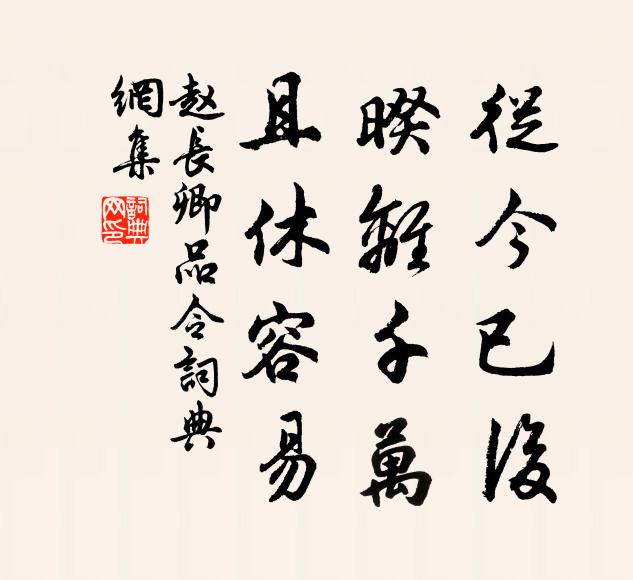 從今已後
暌離千萬
且休容易
赵長卿品令詞典
網集
詞典
网印